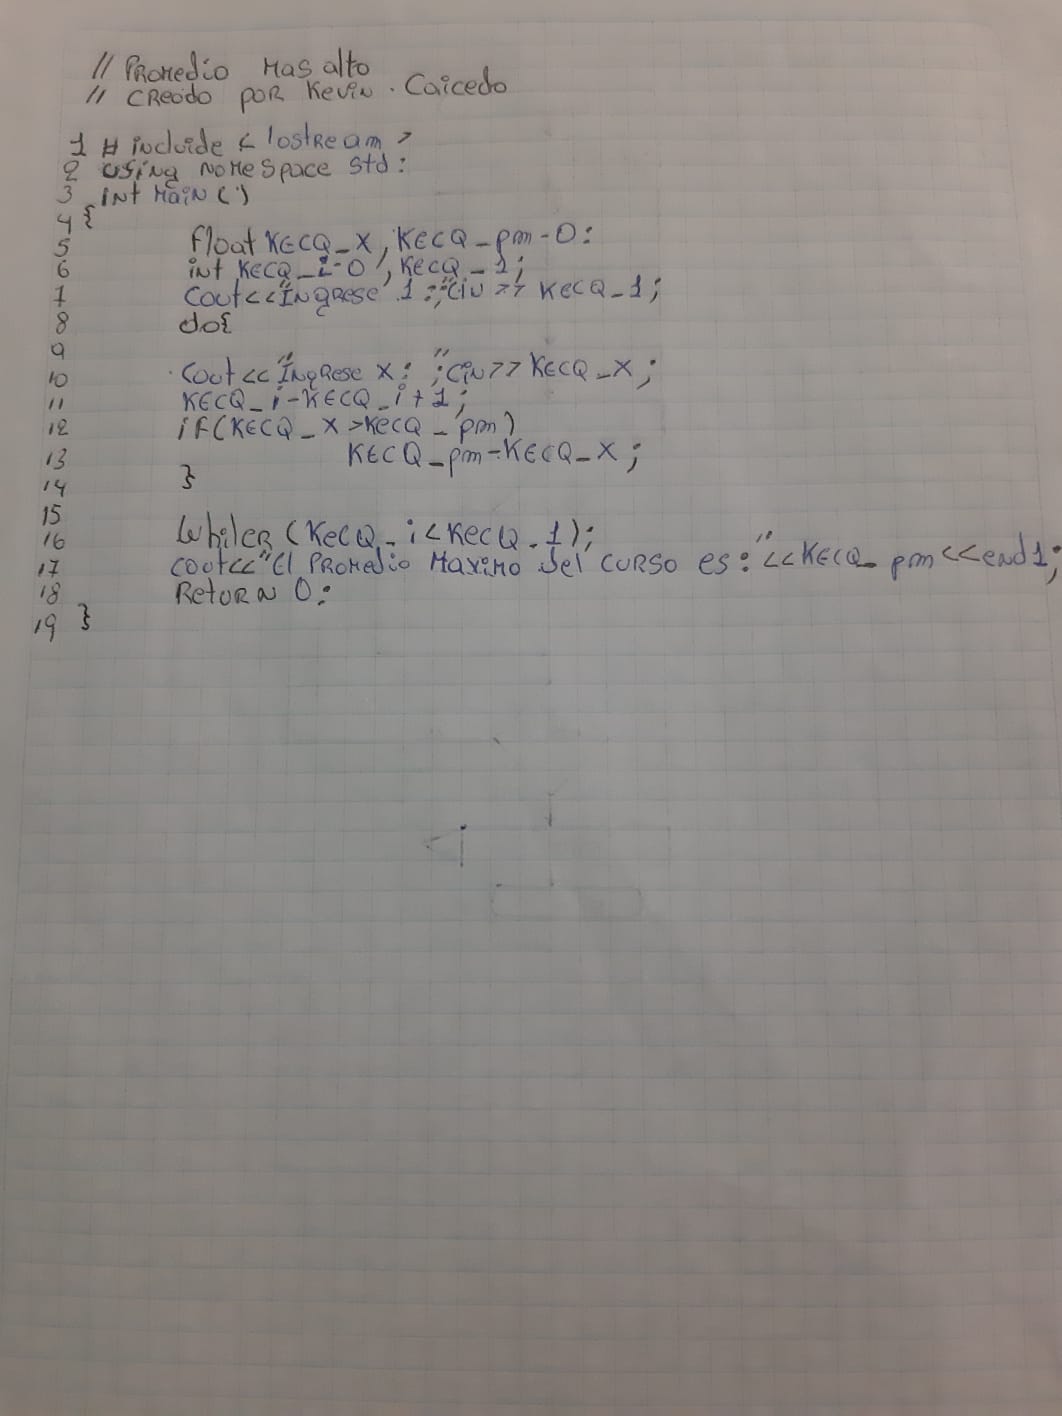 // Promedio Mas alto
// Creado por Kevin . Caicedo
1 # include < Iostream >
2 Using NameSpace Std:
3 int Main ( )
4 {
5 float KECQ_X, KECQ_pm-0:
6 int KECQ_i-0, KECQ_1;
7 Cout<<"Ingrese 1:";Cin >> KECQ_1;
8 do{
9
10 Cout<<"Ingrese X: ";Cin>>KECQ_X;
11 KECQ_i-KECQ_i+1;
12 if(KECQ_X>KECQ_pm)
13 KECQ_pm-KECQ_X;
14 }
15
16 Whiler (KECQ_i<KECQ_1);
17 cout<<"El Promedio Maximo del curso es:"<<KECQ_pm<<end1;
18 Return 0:
19 }